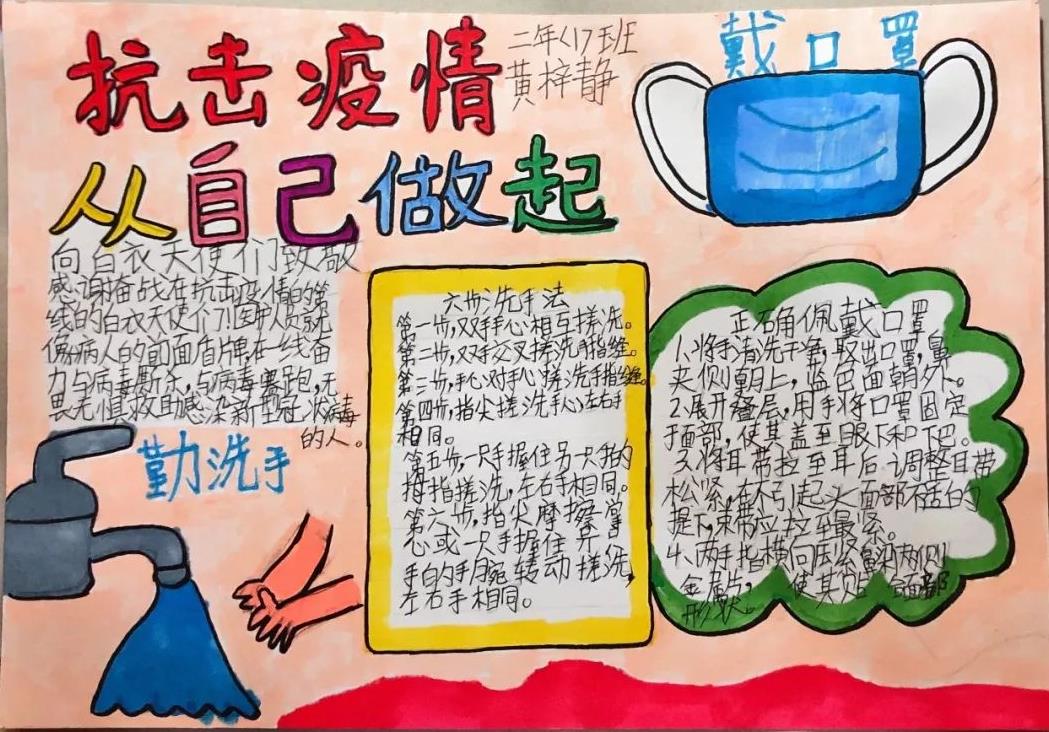 抗击疫情
二年(17)班
黄梓静
从自己做起
戴口罩
向白衣天使们致敬
感谢奋战在抗击疫情的第
线的白衣天使们!医护人员就
像病人的前面盾牌,在一线奋
力与病毒厮杀,与病毒赛跑,无
畏无惧救助感染新型冠状病毒
的人。
勤洗手
六步洗手法
第一步,双手手心相互搓洗。
第二步,双手交叉搓洗手指缝。
第三步,手心对手心搓洗手指缝。
第四步,指尖搓洗手心,左右手
相同。
第五步,一只手握住另一只手的
拇指搓洗,左右手相同。
第六步,指尖摩擦掌
心或一只手握住另一
手的手腕转动搓洗,
左右手相同。
正确佩戴口罩
1.将手清洗干净,取出口罩,鼻
夹侧朝上,蓝色面朝外。
2.展开叠层,用手将口罩固定
于面部,使其盖至眼下和下巴。
3.将耳带拉至耳后,调整耳带
松紧,在不引起头面部不适的
提下,束带应拉至最紧。
4.两手指横向压紧鼻梁两侧
金属片, 使其贴 面部
形状。